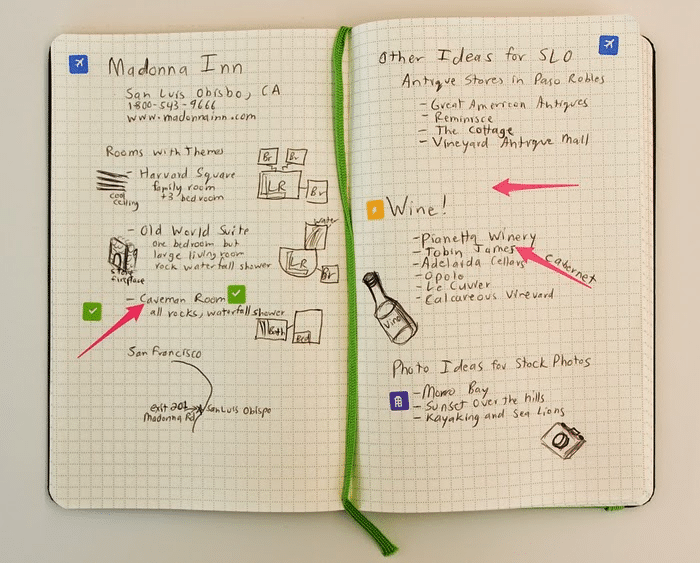 Madonna Inn
San Luis Obisbo, CA
1-800-543-9666
www.madonnainn.com
Rooms with Themes
- Harvard Square
family room
+3 bedroom
cool
ceiling
Br
Br
LR
Br
- Old World Suite
one bedroom but
large living room
rock waterfall shower
fireplace
water
LR
Br
- Caveman Room
all rocks, waterfall shower
Bath
Bed
San Francisco
exit 201
Madonna Rd
San Luis Obispo
Other Ideas for SLO
Antique Stores in Paso Robles
- Great American Antiques
- Reminisce
- The Cottage
- Vineyard Antique Mall
Wine!
- Pianetta Winery
- Tobin James
cabernet
- Adelaida Cellars
- Opolo
- Le Cuvier
- Calcareous Vineyard
Vino
Photo Ideas for Stock Photos
- Morro Bay
- Sunset over the hills
- Kayaking and Sea Lions